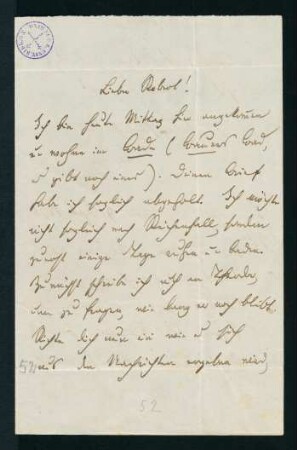 Liebe
Ich bin heute Mittag hier angekommen
u wohne im Bade (Bauers Bad,
es gibt noch eines). Deinen Brief
habe ich sogleich abgeholt. Ich möchte
nicht sogleich nach Reichenhall, sondern
zuerst einige Tage ruhen u baden.
Zunächst schreibe ich nun an Theodor,
um zu fragen, wie lang er noch bleibt.
Richte dich nun ein wie es sich
aus den Nachrichten ergeben wird,
52
52